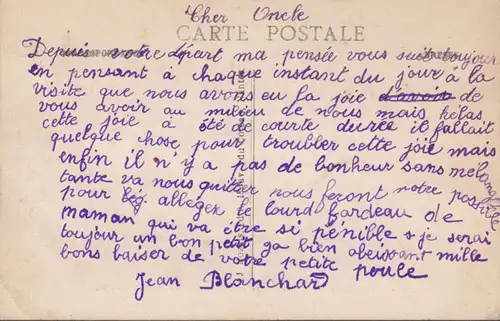 Cher Oncle
CARTE POSTALE
Depuis votre départ ma pensée vous suit toujour
en pensant à chaque instant du jour à la
visite que nous avons eu la joie d'avoir de
vous avoir au milieu de nous mais hélas
cette joie a été de courte durée il fallait
quelque chose pour troubler cette joie mais
enfin il n'y a pas de bonheur sans mélange
tante va nous quitter nous feront notre possible
pour alleger le lourd fardeau de
maman qui va être si pénible & je serai
toujour un bon petit ga bien obeissant mille
bons baiser de votre petite poule
Jean Blanchard